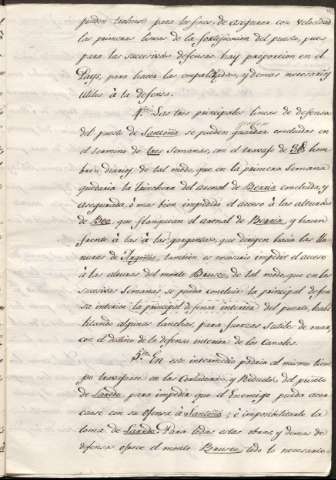 pueden trabnos para los fines de asegurar con velocidad
las primeras lineas de la fortificacion del puesto, pues
para las succesivas defensas hay proporcion en el
Pays, para hacer las empalizadas, y demas necesarios
utiles á la defensa.
4ª Las tres principales lineas de defensa
del puesto de Santoña se pueden quedar concluidas en
el termino de tres semanas, con el travajo de hom
bres diarios de tal modo, que en la primera semana
quedaria la trinchera del arenal de Berria concluida, y
asegurada, ó mas bien impedido el acceso á las alturas
de que flanquean el arenal de Berria, y hacen
frente á las gargantas que dirigen hacia las lla
nuras de Argoños, tambien es necesario impedir el acceso
á las alturas del monte Brusco de tal modo, que en las
succesivas semanas se pueda concluir la principal defen
sa interior la principal defensa interior del puesto, habi
litando algunas lanchas, para fuerzas sutiles de mar,
con el objeto de la defensa interior de los canales.
5ª En este intermedio podria al mismo tiem
po travajarse en las y Reductos del puesto
de Laredo para impedir que el Enemigo pueda acer
carse con su ofensa á Santoña, é imposibilitarle la
toma de Laredo. Para todas estas obras, y demas de
defensa ofrece el monte Brusco todo lo necesario